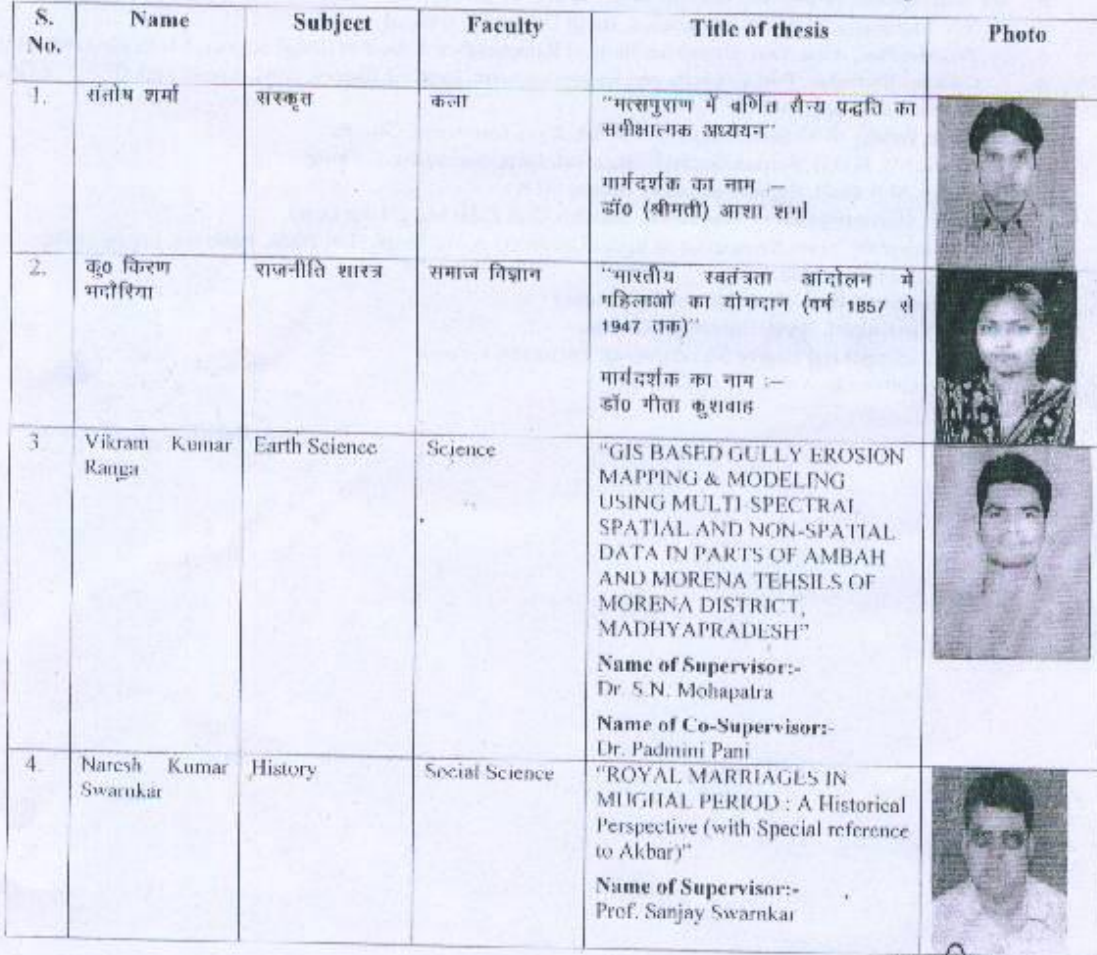 S. No. Name Subject Faculty Title of thesis Photo
1. संतोष शर्मा संस्कृत कला "मत्सपुराण में वर्णित सैन्य पद्धति का
समीक्षात्मक अध्ययन"
मार्गदर्शक का नाम :—
डॉ० (श्रीमती) आशा शर्मा
2. कु० किरण राजनीति शास्त्र समाज विज्ञान "भारतीय स्वतंत्रता आंदोलन में
भदौरिया महिलाओं का योगदान (वर्ष 1857 से
1947 तक)"
मार्गदर्शक का नाम :—
डॉ० गीता कुशवाह
3. Vikram Kumar Earth Science Science "GIS BASED GULLY EROSION
Ranga MAPPING & MODELING
USING MULTI-SPECTRAL
SPATIAL AND NON-SPATIAL
DATA IN PARTS OF AMBAH
AND MORENA TEHSILS OF
MORENA DISTRICT,
MADHYAPRADESH"
Name of Supervisor:-
Dr. S.N. Mohapatra
Name of Co-Supervisor:-
Dr. Padmini Pani
4. Naresh Kumar History Social Science "ROYAL MARRIAGES IN
Swarnkar MUGHAL PERIOD : A Historical
Perspective (with Special reference
to Akbar)"
Name of Supervisor:-
Prof. Sanjay Swarnkar